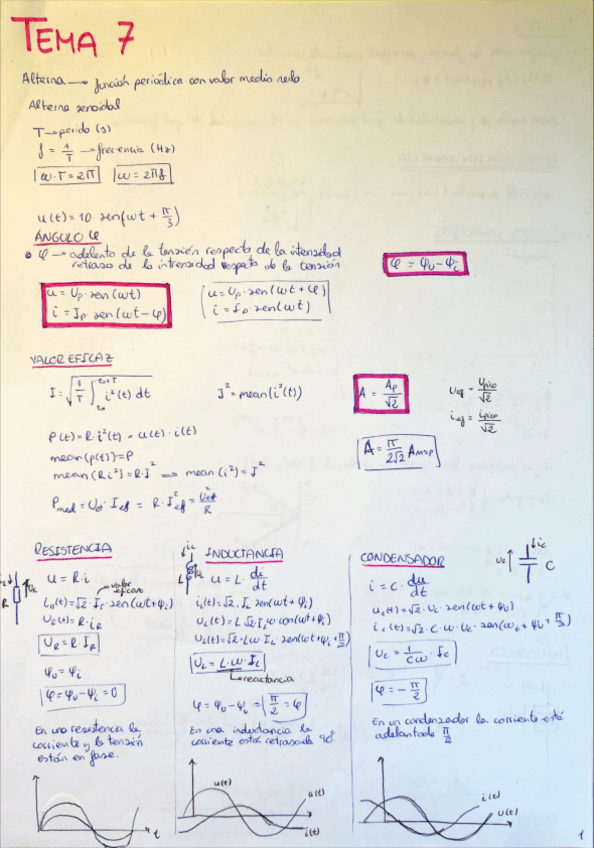 TEMA 7
Alterna → función periódica con valor medio nulo
Alterna senoidal
T → periodo (s)
f = 1/T → frecuencia (Hz)
ω·T = 2π ω = 2πf
u(t) = 10 · sen(ωt + π/3)
ÁNGULO φ
φ → adelanto de la tensión respecto de la intensidad
retraso de la intensidad respecto de la tensión
φ = φu - φi
u = Up · sen(ωt)
i = Ip · sen(ωt - φ)
u = Up · sen(ωt + φ)
i = Ip · sen(ωt)
VALOR EFICAZ
I = √(1/T ∫ i²(t) dt)
I² = mean(i²(t))
A = Ap/√2
uef = upico/√2
ief = ipico/√2
p(t) = R · i²(t) = u(t) · i(t)
mean(p(t)) = P
mean(R i²) = R·I² ⇒ mean(i²) = I²
A = π/2√2
Pmed = Uef · Ief = R · I²ef = U²ef/R
RESISTENCIA
R
u = R · i
valor eficaz
uR(t) = R · iR
UR = R · IR
φu = φi
φ = φu - φi = 0
En una resistencia la
corriente y la tensión
están en fase.
t
INDUCTANCIA
L
u = L · di/dt
iL(t) = √2 · IL sen(ωt + φi)
uL(t) = L √2 IL ω cos(ωt + φi)
uL(t) = √2 · Lω IL · sen(ωt + φi + π/2)
UL = L·ω · IL
reactancia
φ = φu - φi = π/2 = φ
En una inductancia la
corriente está retrasada 90°
u(t)
i(t)
CONDENSADOR
ic
uc
C
i = C · du/dt
uc(t) = √2 · Uc · sen(ωt + φu)
Uc = 1/Cω · Ic
φ = -π/2
En un condensador la corriente está
adelantada π/2
i(t)
u(t)
1